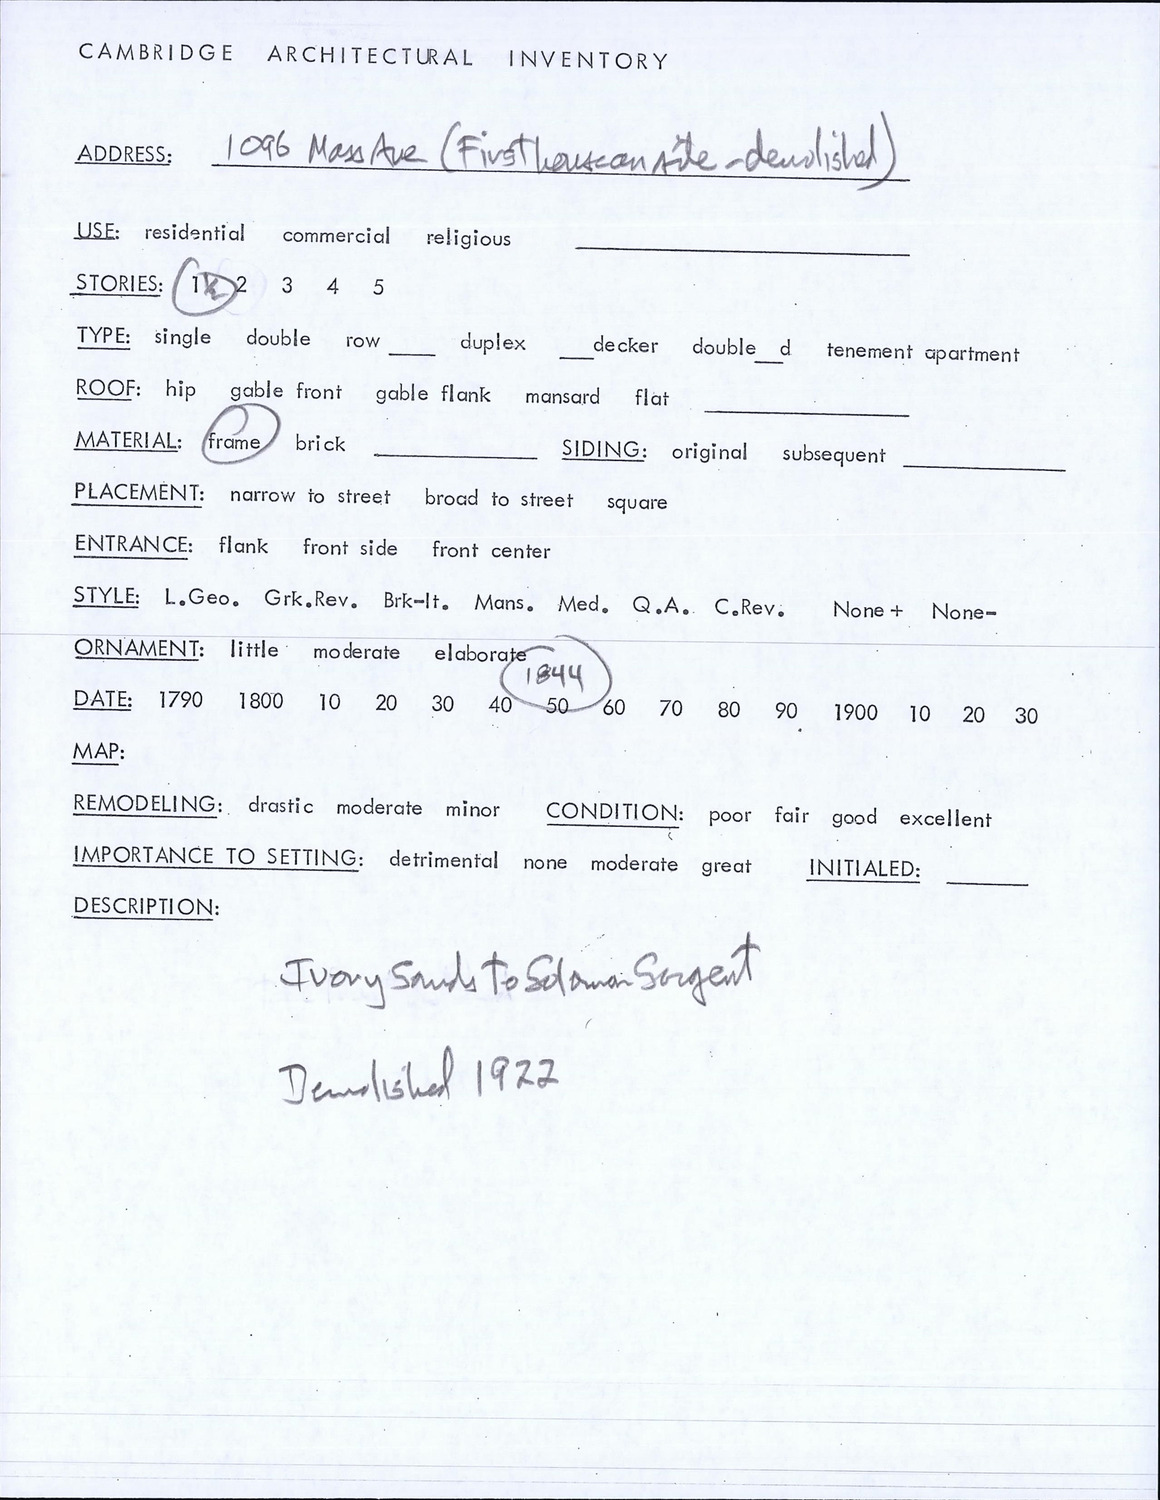 CAMBRIDGE ARCHITECTURAL INVENTORY
ADDRESS: 1096 Mass Ave (First house on site - demolished)
USE: residential commercial religious
STORIES: 1½ 2 3 4 5
TYPE: single double row ____ duplex ___decker double__d tenement apartment
ROOF: hip gable front gable flank mansard flat
MATERIAL: frame brick SIDING: original subsequent
PLACEMENT: narrow to street broad to street square
ENTRANCE: flank front side front center
STYLE: L.Geo. Grk.Rev. Brk-It. Mans. Med. Q.A. C.Rev. None+ None-
ORNAMENT: little moderate elaborate
1844
DATE: 1790 1800 10 20 30 40 50 60 70 80 90 1900 10 20 30
MAP:
REMODELING: drastic moderate minor CONDITION: poor fair good excellent
IMPORTANCE TO SETTING: detrimental none moderate great INITIALED:
DESCRIPTION:
Ivory Sands to Solomon Sargent
Demolished 1922